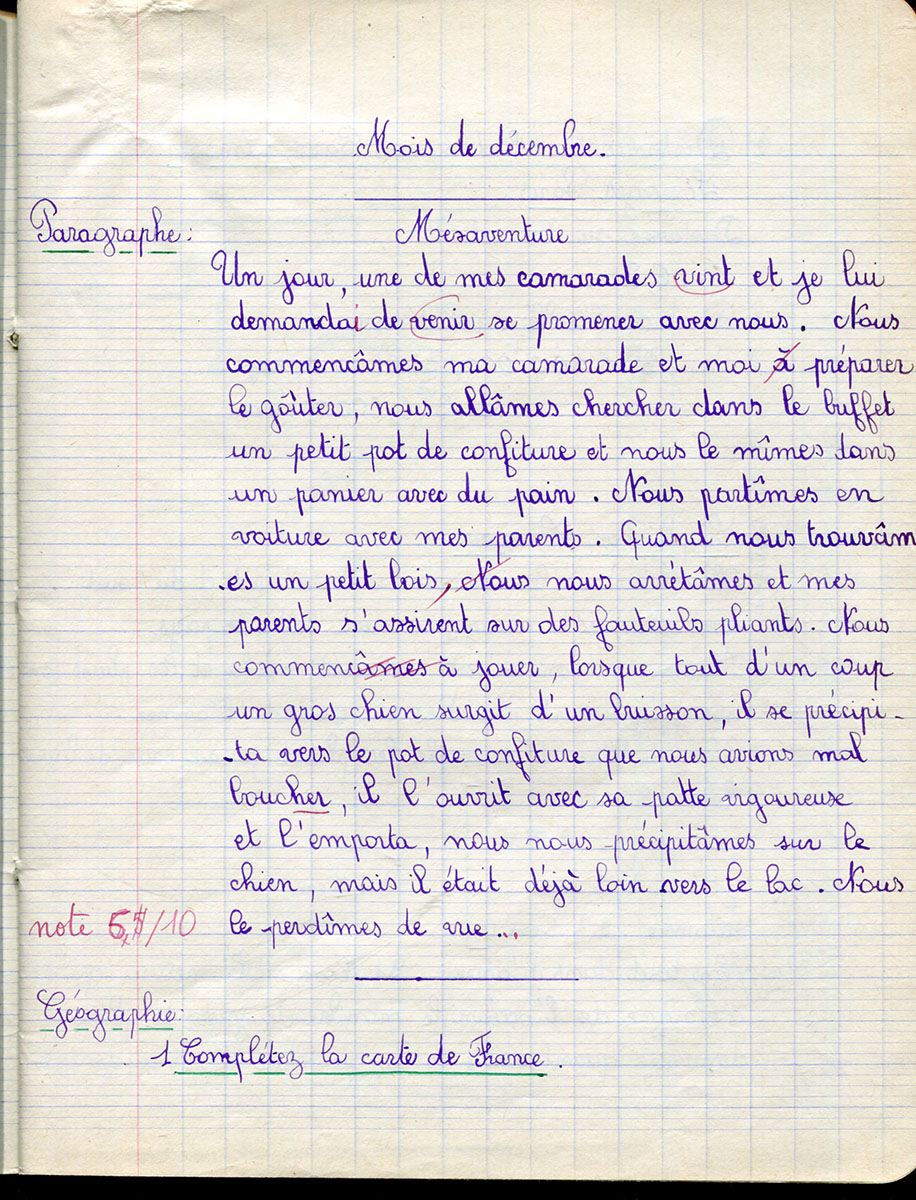 Mois de décembre.
Paragraphe: Mésaventure
Un jour, une de mes camarades vint et je lui
demandai de venir se promener avec nous. Nous
commencâmes ma camarade et moi à préparer
le goûter, nous allâmes chercher dans le buffet
un petit pot de confiture et nous le mîmes dans
un panier avec du pain. Nous partîmes en
voiture avec mes parents. Quand nous trouvâm
-es un petit bois, Nous nous arrétâmes et mes
parents s'assirent sur des fauteuils pliants. Nous
commencâmes à jouer, lorsque tout d'un coup
un gros chien surgit d'un buisson, il se précipi-
-ta vers le pot de confiture que nous avions mal
boucher, il l'ouvrit avec sa patte vigoureuse
et l'emporta, nous nous précipitâmes sur le
chien, mais il était déjà loin vers le lac. Nous
note /10 le perdîmes de vue...
Géographie:
1 Complétez la carte de France.